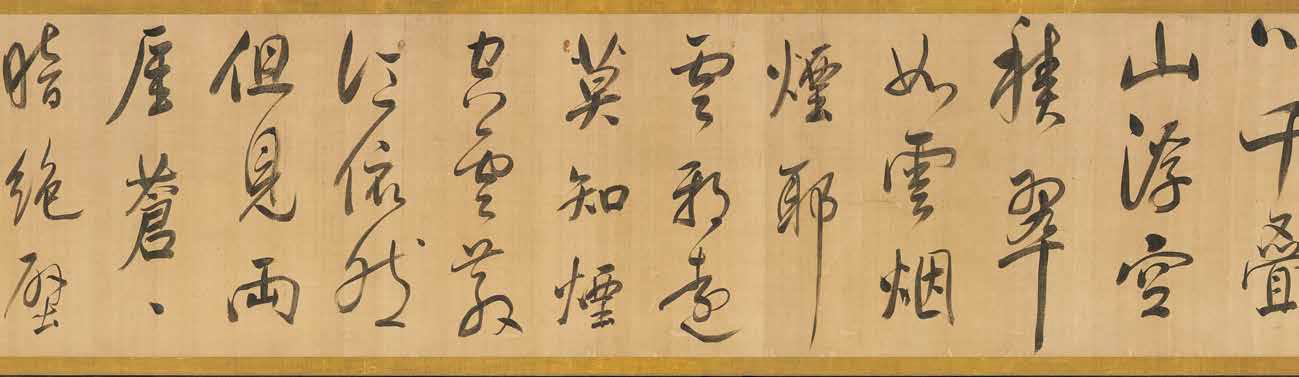 心千叠
山浮空
積翠
如雲烟
煙耶
雲邪遠
莫知煙
空雲散
江依然
但見兩
崖蒼〻
暗絶壁